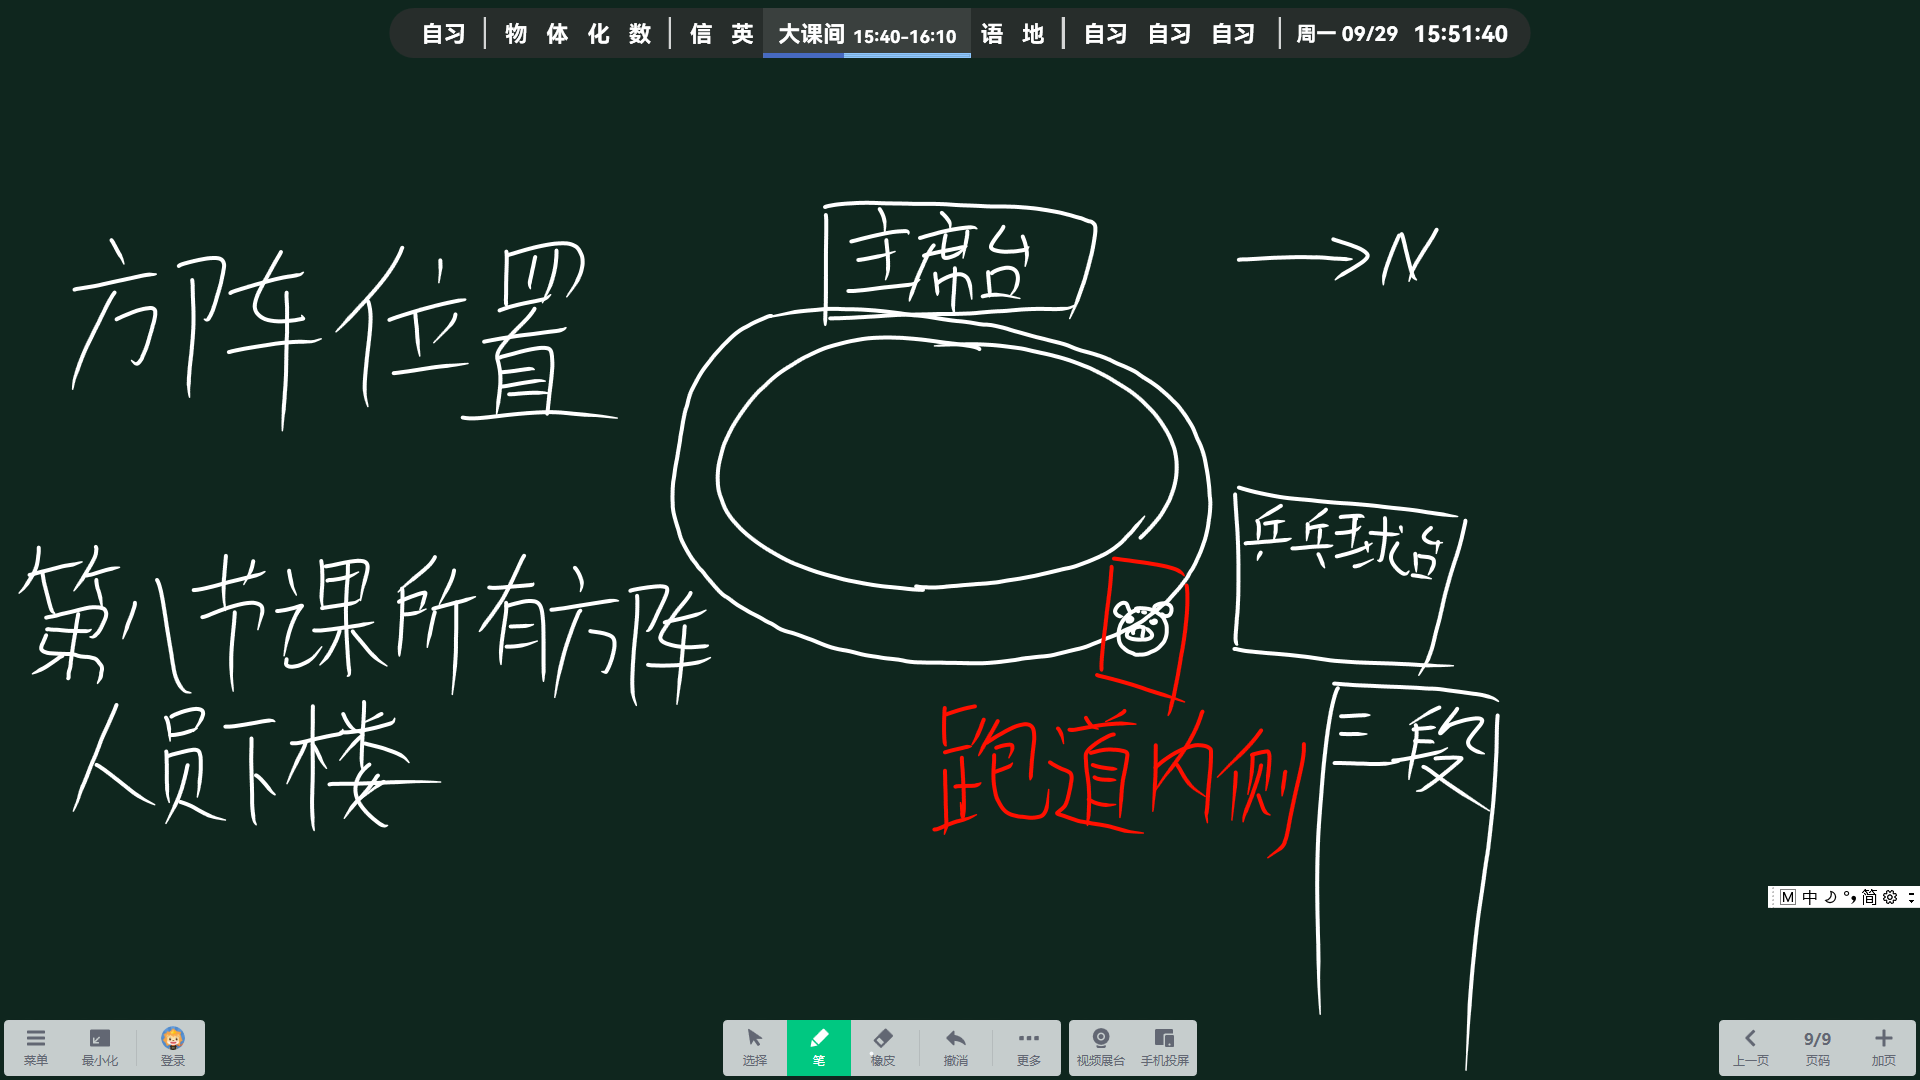 自习 | 物 体 化 数 | 信 英 大课间 15:40-16:10 语 地 | 自习 自习 自习 | 周一 09/29 15:51:40
主席台
N
方阵位置
乒乓球台
第八节课所有方阵
人员下楼
三段
跑道内侧
M 中 简
菜单 最小化 登录 选择 笔 橡皮 撤消 更多 视频展台 手机投屏 上一页 9/9 页码 加页